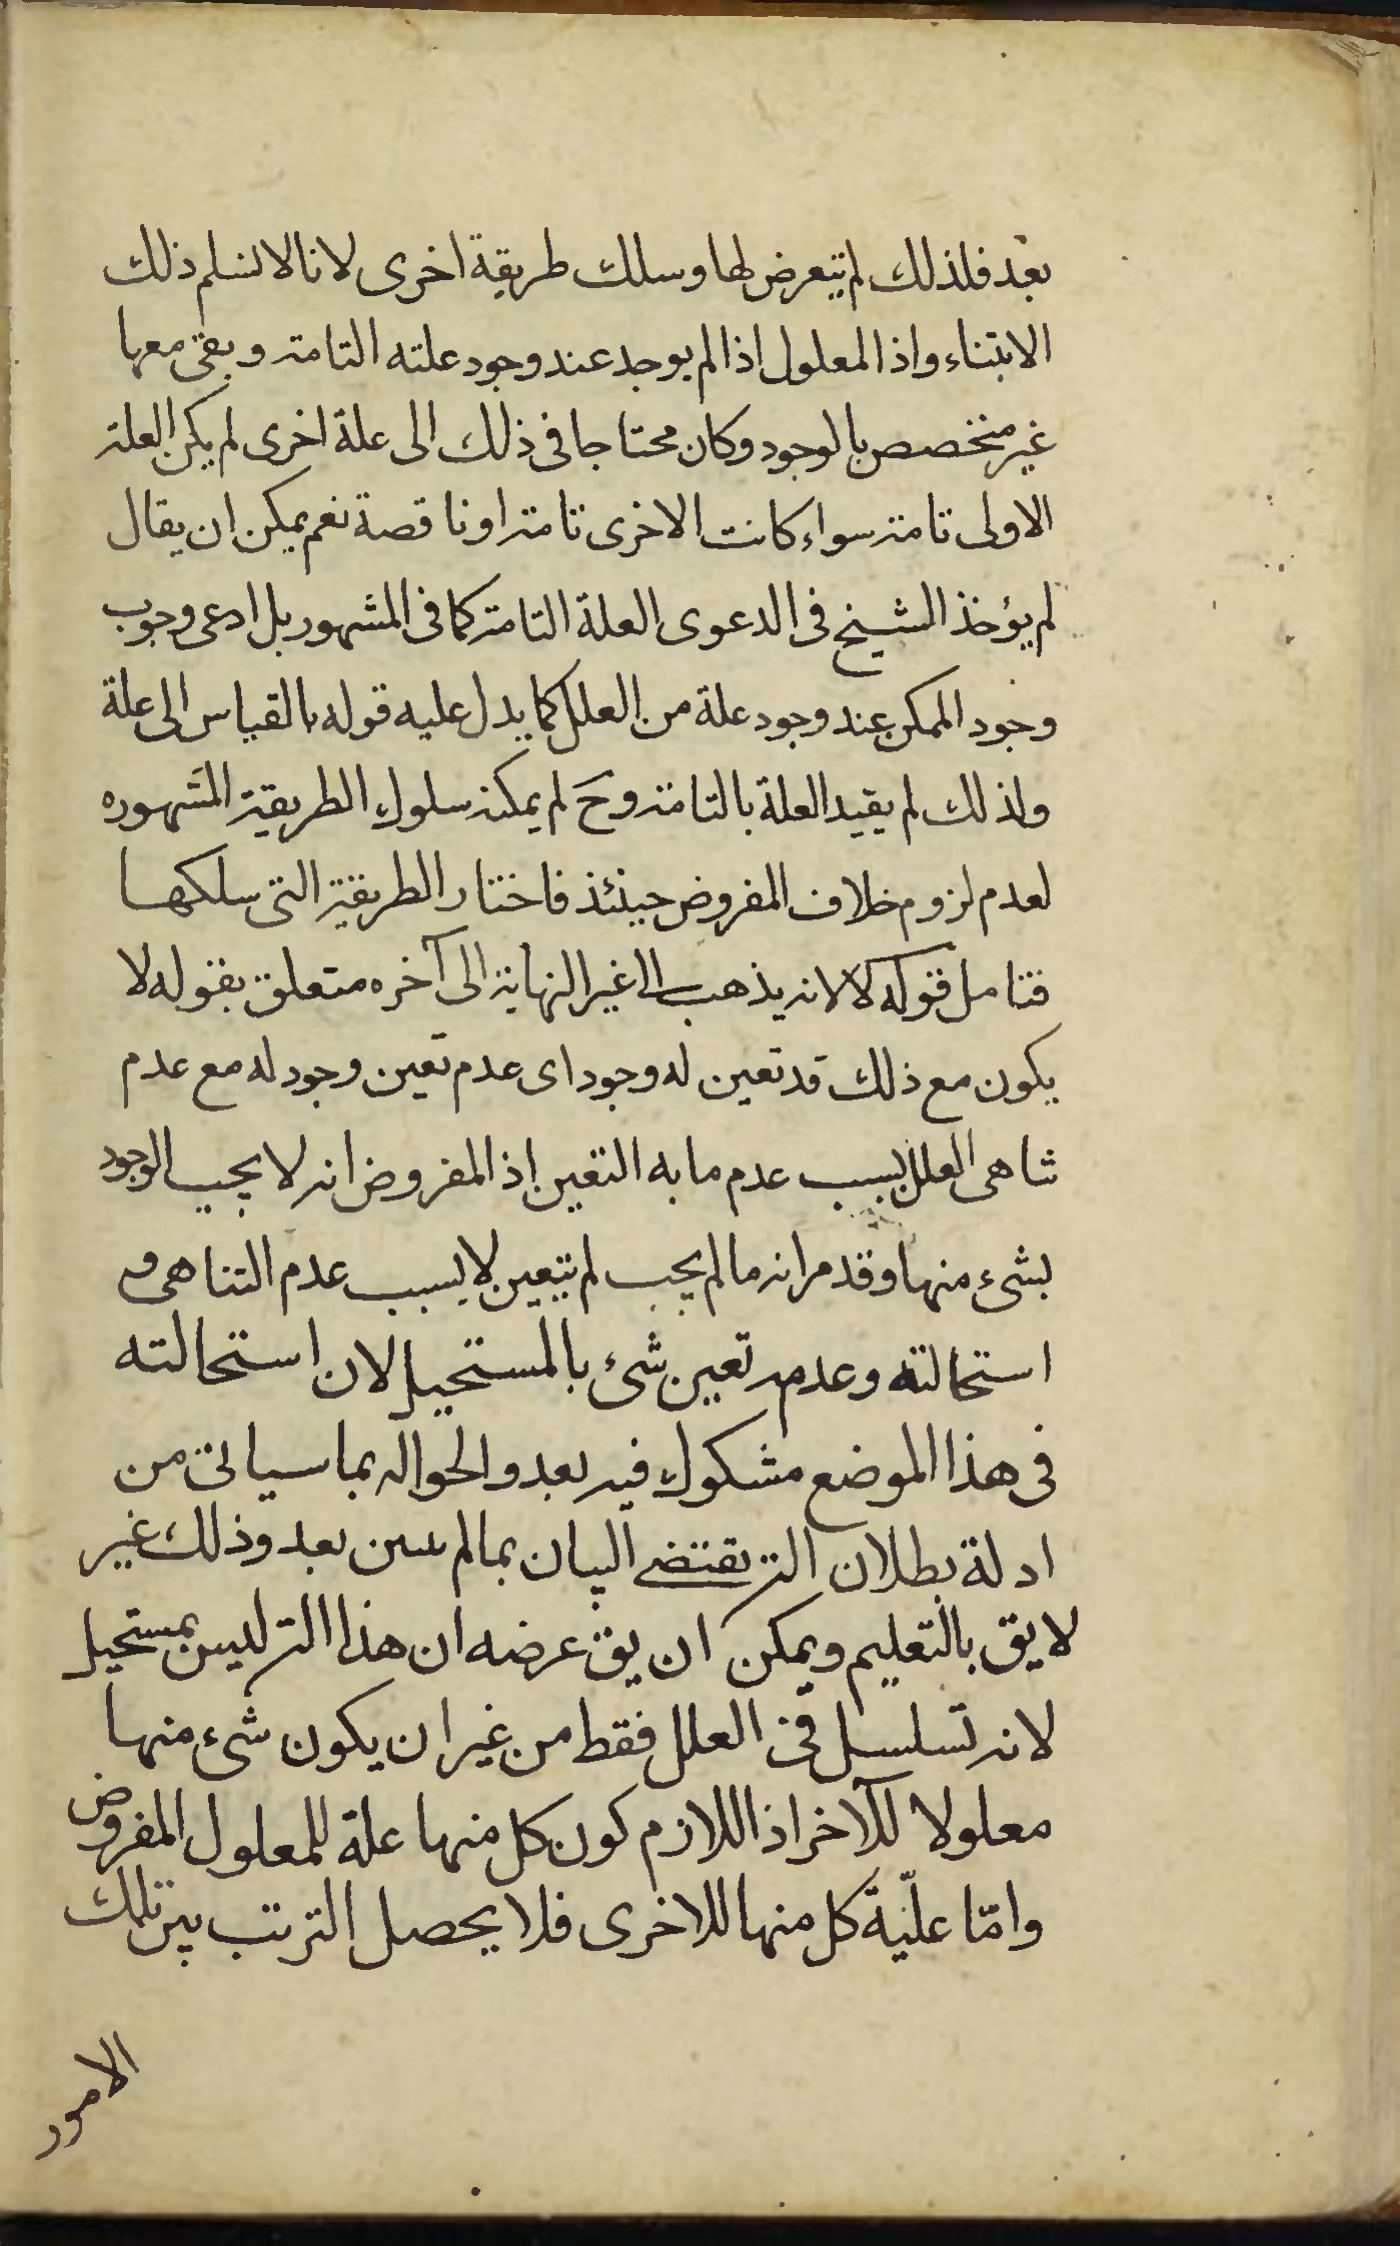 بعد فلذلك لم يتعرض لها وسلك طريقة اخرى لانا لا نسلم ذلك
الابتناء واذ المعلول اذا لم يوجد عند وجود علته التامة وبقى معها
غير متخصص بالوجود وكان محتاجا فى ذلك الى علة اخرى لم يكن العلة
الاولى تامة سواء كانت الاخرى تامة او ناقصة نعم يمكن ان يقال
لم يؤخذ الشيخ فى الدعوى العلة التامة كما فى المشهور بل ادعى وجوب
وجود الممكن عند وجود علة من العلل كما يدل عليه قوله بالقياس الى علة
ولذلك لم يقيد العلة بالتامة وح لم يمكنه سلوك الطريقة المشهوره
لعدم لزوم خلاف المفروض حينئذ فاختار الطريقة التى سلكها
فتامل قوله لا لانه يذهب الى غير النهاية الى آخره متعلق بقوله لا
يكون مع ذلك قد تعين له وجود اى عدم تعين وجود له مع عدم
تناهى العلل بسبب عدم ما به التعين اذ المفروض انه لا يجب الوجود
بشىء منها وقد مر انه ما لم يجب لم يتعين لا بسبب عدم التناهى و
استحالته وعدم تعين شئ بالمستحيل لان استحالته
فى هذا الموضع مشكوك فيه بعد والحواله بما سياتى من
ادلة بطلان التس يقتضى البيان بما لم يبين بعد وذلك غير
لايق بالتعليم ويمكن ان يق عرضه ان هذا التس ليس بمستحيل
لانه تسلسل فى العلل فقط من غير ان يكون شىء منها
معلولا للآخر اذ اللازم كون كل منها علة للمعلول المفروض
وامّا علّيّة كل منها للاخرى فلا يحصل الترتب بين تلك
الامور